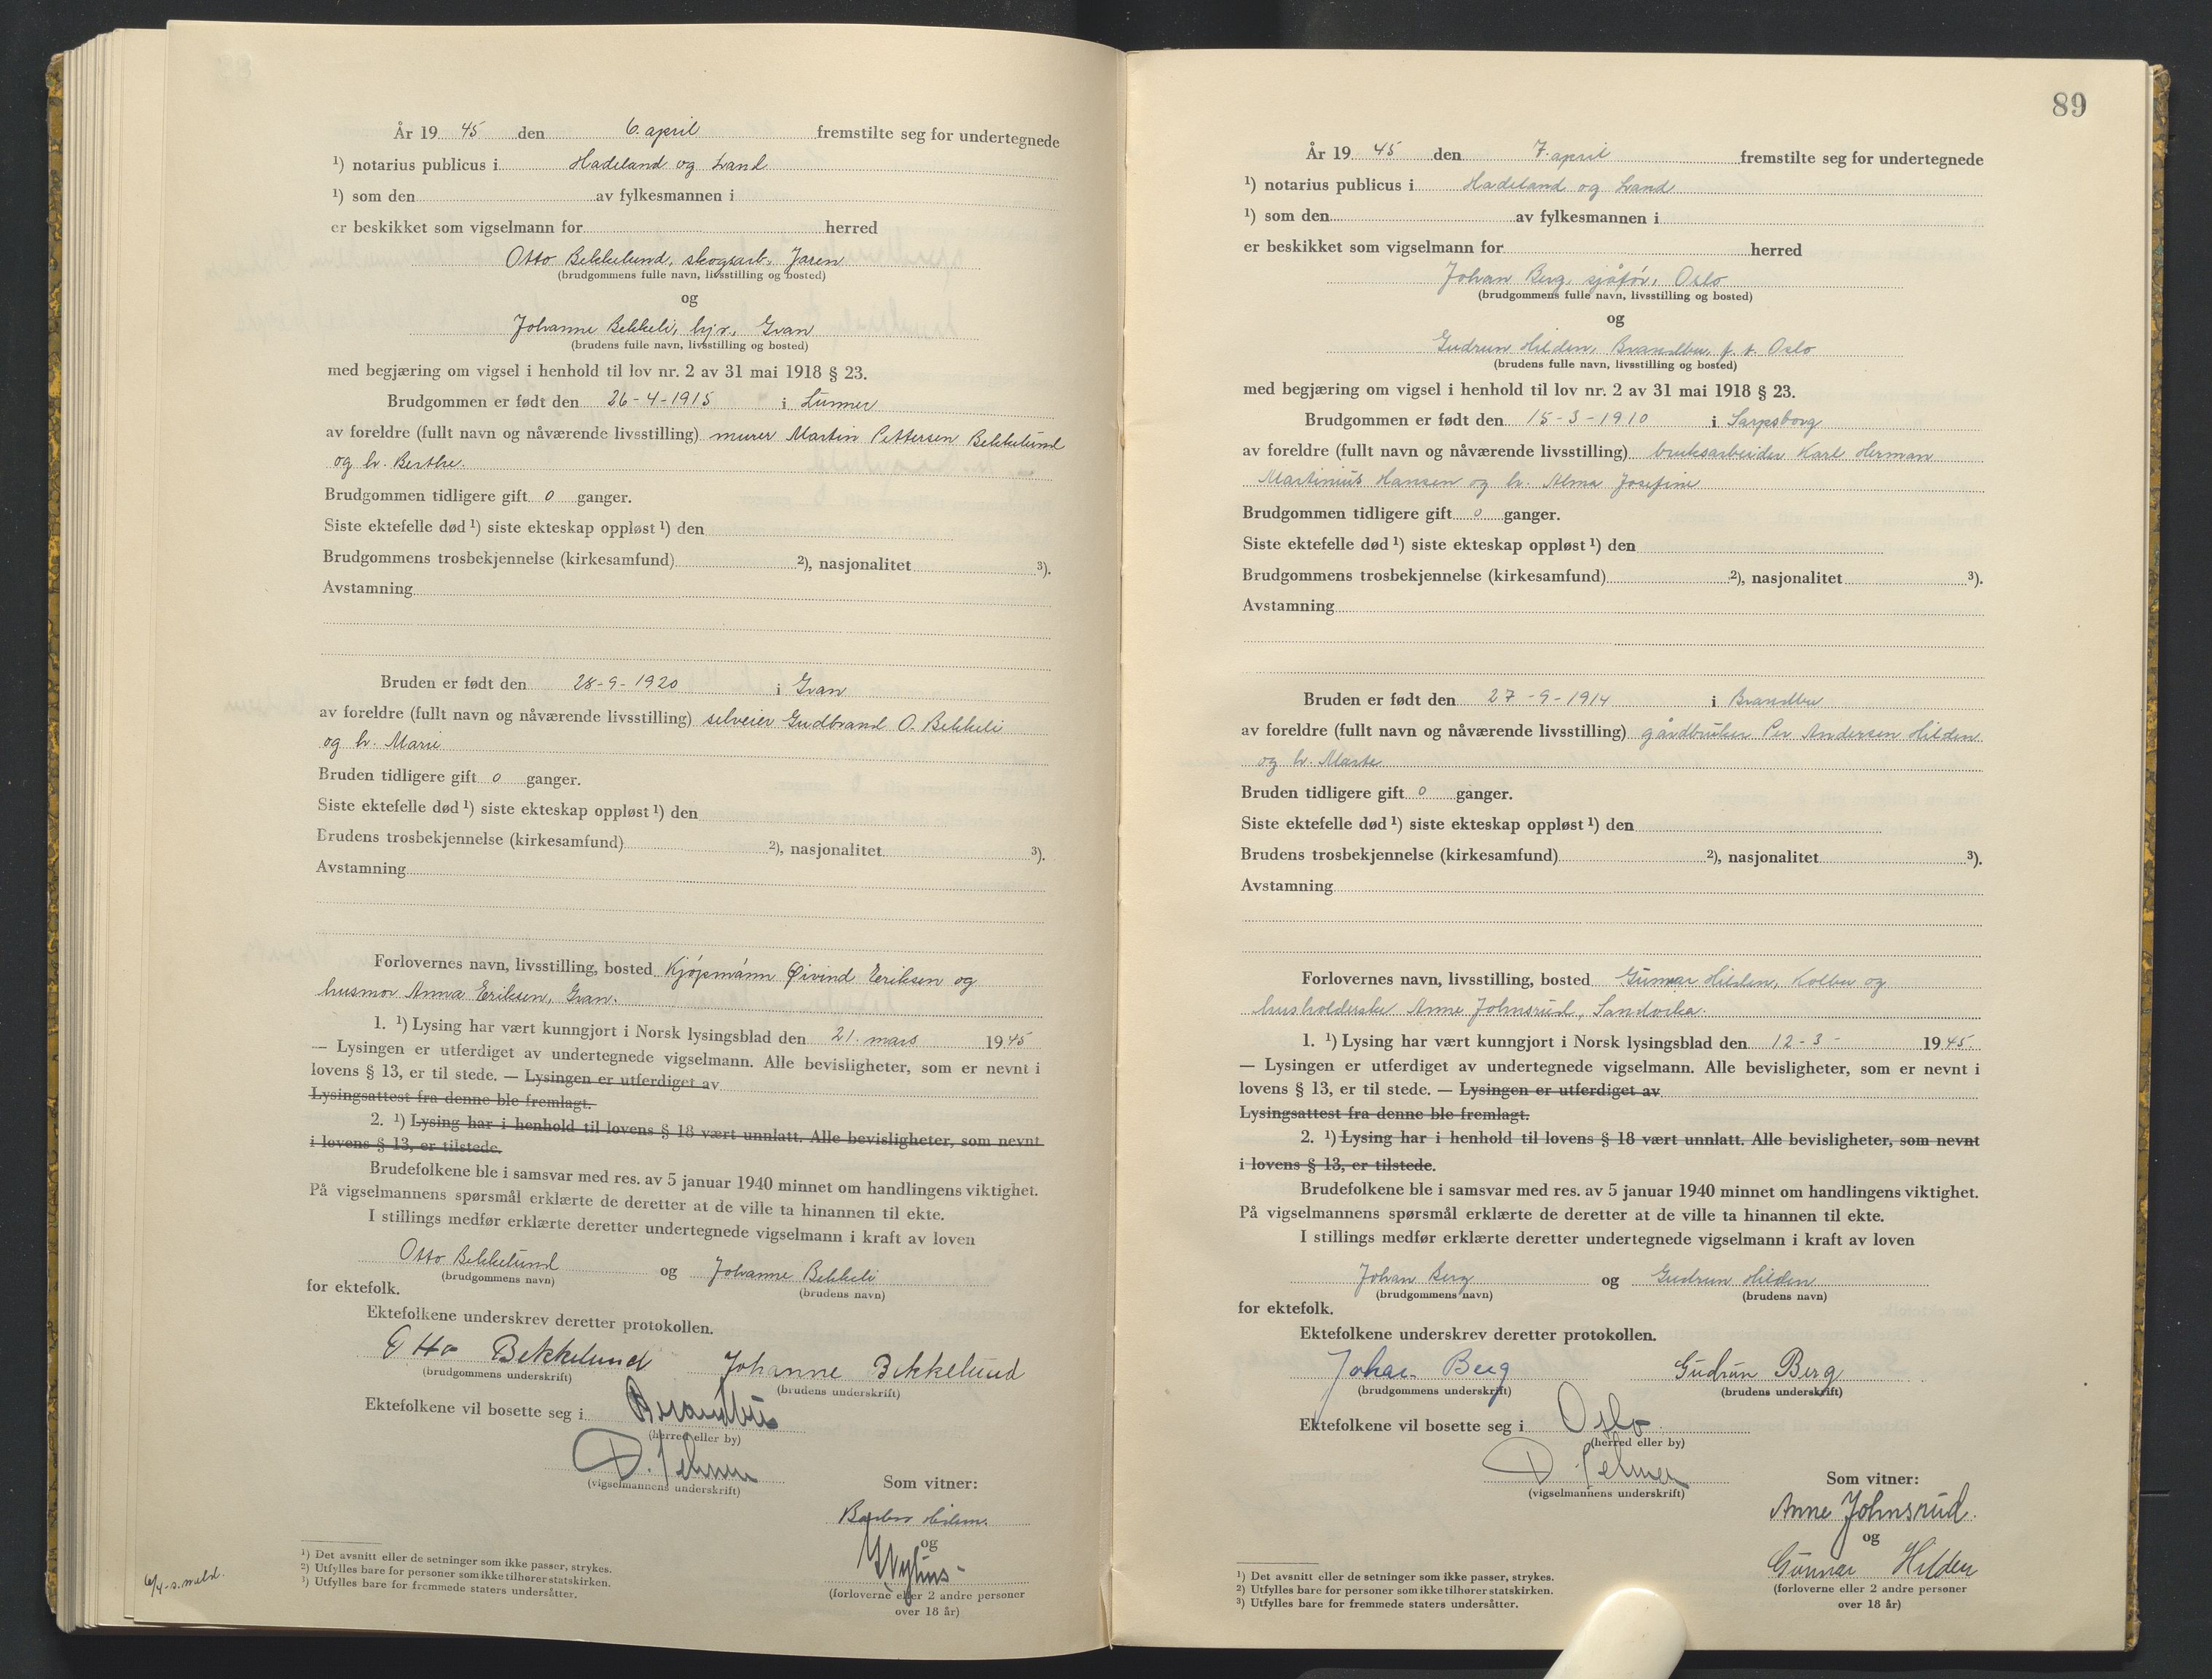 År 19 45 den 6. april fremstilte seg for undertegnede
¹) notarius publicus i Hadeland og Land
¹) som den av fylkesmannen i
er beskikket som vigselmann for herred
Otto Bekkelund, skogsarb. Jaren
(brudgommens fulle navn, livsstilling og bosted)
og
Johanne Bekkeli, hjv., Gran
(brudens fulle navn, livsstilling og bosted)
med begjæring om vigsel i henhold til lov nr. 2 av 31 mai 1918 § 23.
Brudgommen er født den 26-4-1915 i Lunner
av foreldre (fullt navn og nåværende livsstilling) murer Martin Pettersen Bekkelund
og h. Berthe.
Brudgommen tidligere gift 0 ganger.
Siste ektefelle død ¹) siste ekteskap oppløst ¹) den
Brudgommens trosbekjennelse (kirkesamfund) ²), nasjonalitet ³).
Avstamning
Bruden er født den 28-9-1920 i Gran
av foreldre (fullt navn og nåværende livsstilling) selveier Gudbrand O. Bekkeli
og h. Marie
Bruden tidligere gift 0 ganger.
Siste ektefelle død ¹) siste ekteskap oppløst ¹) den
Brudens trosbekjennelse (kirkesamfund) ²), nasjonalitet ³).
Avstamning
Forlovernes navn, livsstilling, bosted Kjøpmann Øivind Eriksen og
husmor Anna Eriksen, Gran.
1. ¹) Lysing har vært kunngjort i Norsk lysingsblad den 21. mars 19 45
— Lysingen er utferdiget av undertegnede vigselmann. Alle bevisligheter, som er nevnt i
lovens § 13, er til stede. — Lysingen er utferdiget av
Lysingsattest fra denne ble fremlagt.
2. ¹) Lysing har i henhold til lovens § 18 vært unnlatt. Alle bevisligheter, som nevnt
i lovens § 13, er tilstede.
Brudefolkene ble i samsvar med res. av 5 januar 1940 minnet om handlingens viktighet.
På vigselmannens spørsmål erklærte de deretter at de ville ta hinannen til ekte.
I stillings medfør erklærte deretter undertegnede vigselmann i kraft av loven
Otto Bekkelund og Johanne Bekkeli
(brudgommens navn) (brudens navn)
for ektefolk.
Ektefolkene underskrev deretter protokollen.
Otto Bekkelund Johanne Bekkelund
(brudgommens underskrift) (brudens underskrift)
Ektefolkene vil bosette seg i Brandbu
(herred eller by)
(vigselmannens underskrift)
Som vitner:
og
(forloverne eller 2 andre personer
over 18 år)
¹) Det avsnitt eller de setninger som ikke passer, strykes.
²) Utfylles bare for personer som ikke tilhører statskirken.
³) Utfylles bare for fremmede staters undersåtter.
6/4-s. meld.
89
År 19 45 den 7. april fremstilte seg for undertegnede
¹) notarius publicus i Hadeland og Land
¹) som den av fylkesmannen i
er beskikket som vigselmann for herred
Johan Berg, sjåfør, Oslo
(brudgommens fulle navn, livsstilling og bosted)
og
Gudrun Hilden, Brandbu, f. t. Oslo
(brudens fulle navn, livsstilling og bosted)
med begjæring om vigsel i henhold til lov nr. 2 av 31 mai 1918 § 23.
Brudgommen er født den 15-3-1910 i Sarpsborg
av foreldre (fullt navn og nåværende livsstilling) bruksarbeider Karl Herman
Martinius Hansen og h. Alma Josefine
Brudgommen tidligere gift 0 ganger.
Siste ektefelle død ¹) siste ekteskap oppløst ¹) den
Brudgommens trosbekjennelse (kirkesamfund) ²), nasjonalitet ³).
Avstamning
Bruden er født den 27-9-1914 i Brandbu
av foreldre (fullt navn og nåværende livsstilling) gårdbruker Per Andersen Hilden
og h. Marte
Bruden tidligere gift 0 ganger.
Siste ektefelle død ¹) siste ekteskap oppløst ¹) den
Brudens trosbekjennelse (kirkesamfund) ²), nasjonalitet ³).
Avstamning
Forlovernes navn, livsstilling, bosted Gunnar Hilden, Kolbu og
husholderske Anne Johnsrud, Sandvika.
1. ¹) Lysing har vært kunngjort i Norsk lysingsblad den 12-3- 19 45.
— Lysingen er utferdiget av undertegnede vigselmann. Alle bevisligheter, som er nevnt i
lovens § 13, er til stede. — Lysingen er utferdiget av
Lysingsattest fra denne ble fremlagt.
2. ¹) Lysing har i henhold til lovens § 18 vært unnlatt. Alle bevisligheter, som nevnt
i lovens § 13, er tilstede.
Brudefolkene ble i samsvar med res. av 5 januar 1940 minnet om handlingens viktighet.
På vigselmannens spørsmål erklærte de deretter at de ville ta hinannen til ekte.
I stillings medfør erklærte deretter undertegnede vigselmann i kraft av loven
Johan Berg og Gudrun Hilden
(brudgommens navn) (brudens navn)
for ektefolk.
Ektefolkene underskrev deretter protokollen.
Johan Berg Gudrun Berg
(brudgommens underskrift) (brudens underskrift)
Ektefolkene vil bosette seg i Oslo
(herred eller by)
(vigselmannens underskrift)
Som vitner:
Anne Johnsrud.
og
Gunnar Hilden
(forloverne eller 2 andre personer
over 18 år)
¹) Det avsnitt eller de setninger som ikke passer, strykes.
2) Utfylles bare for personer som ikke tilhører statskirken.
³) Utfylles bare for fremmede staters undersåtter.